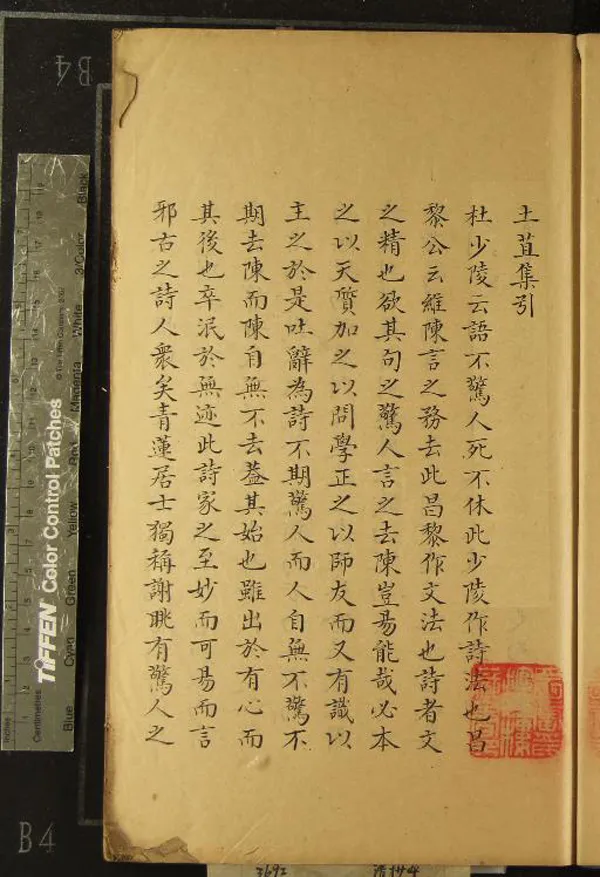 土苴集引
杜少陵云語不驚人死不休此少陵作詩法也昌
黎公云維陳言之務去此昌黎作文法也詩者文
之精也欲其句之驚人言之去陳豈易能哉必本
之以天質加之以問學正之以師友而又有識以
主之於是吐辭為詩不期驚人而人自無不驚不
期去陳而陳自無不去葢其始也雖出於有心而
其後也卒泯於無迹此詩家之至妙而可易而言
邪古之詩人衆矣青蓮居士獨稱謝朓有驚人之
B4
B4
TIFFEN Color Control Patches
Blue Cyan Green Yellow Red Magenta White 3/Color Black
Inches
Centimetres
3692